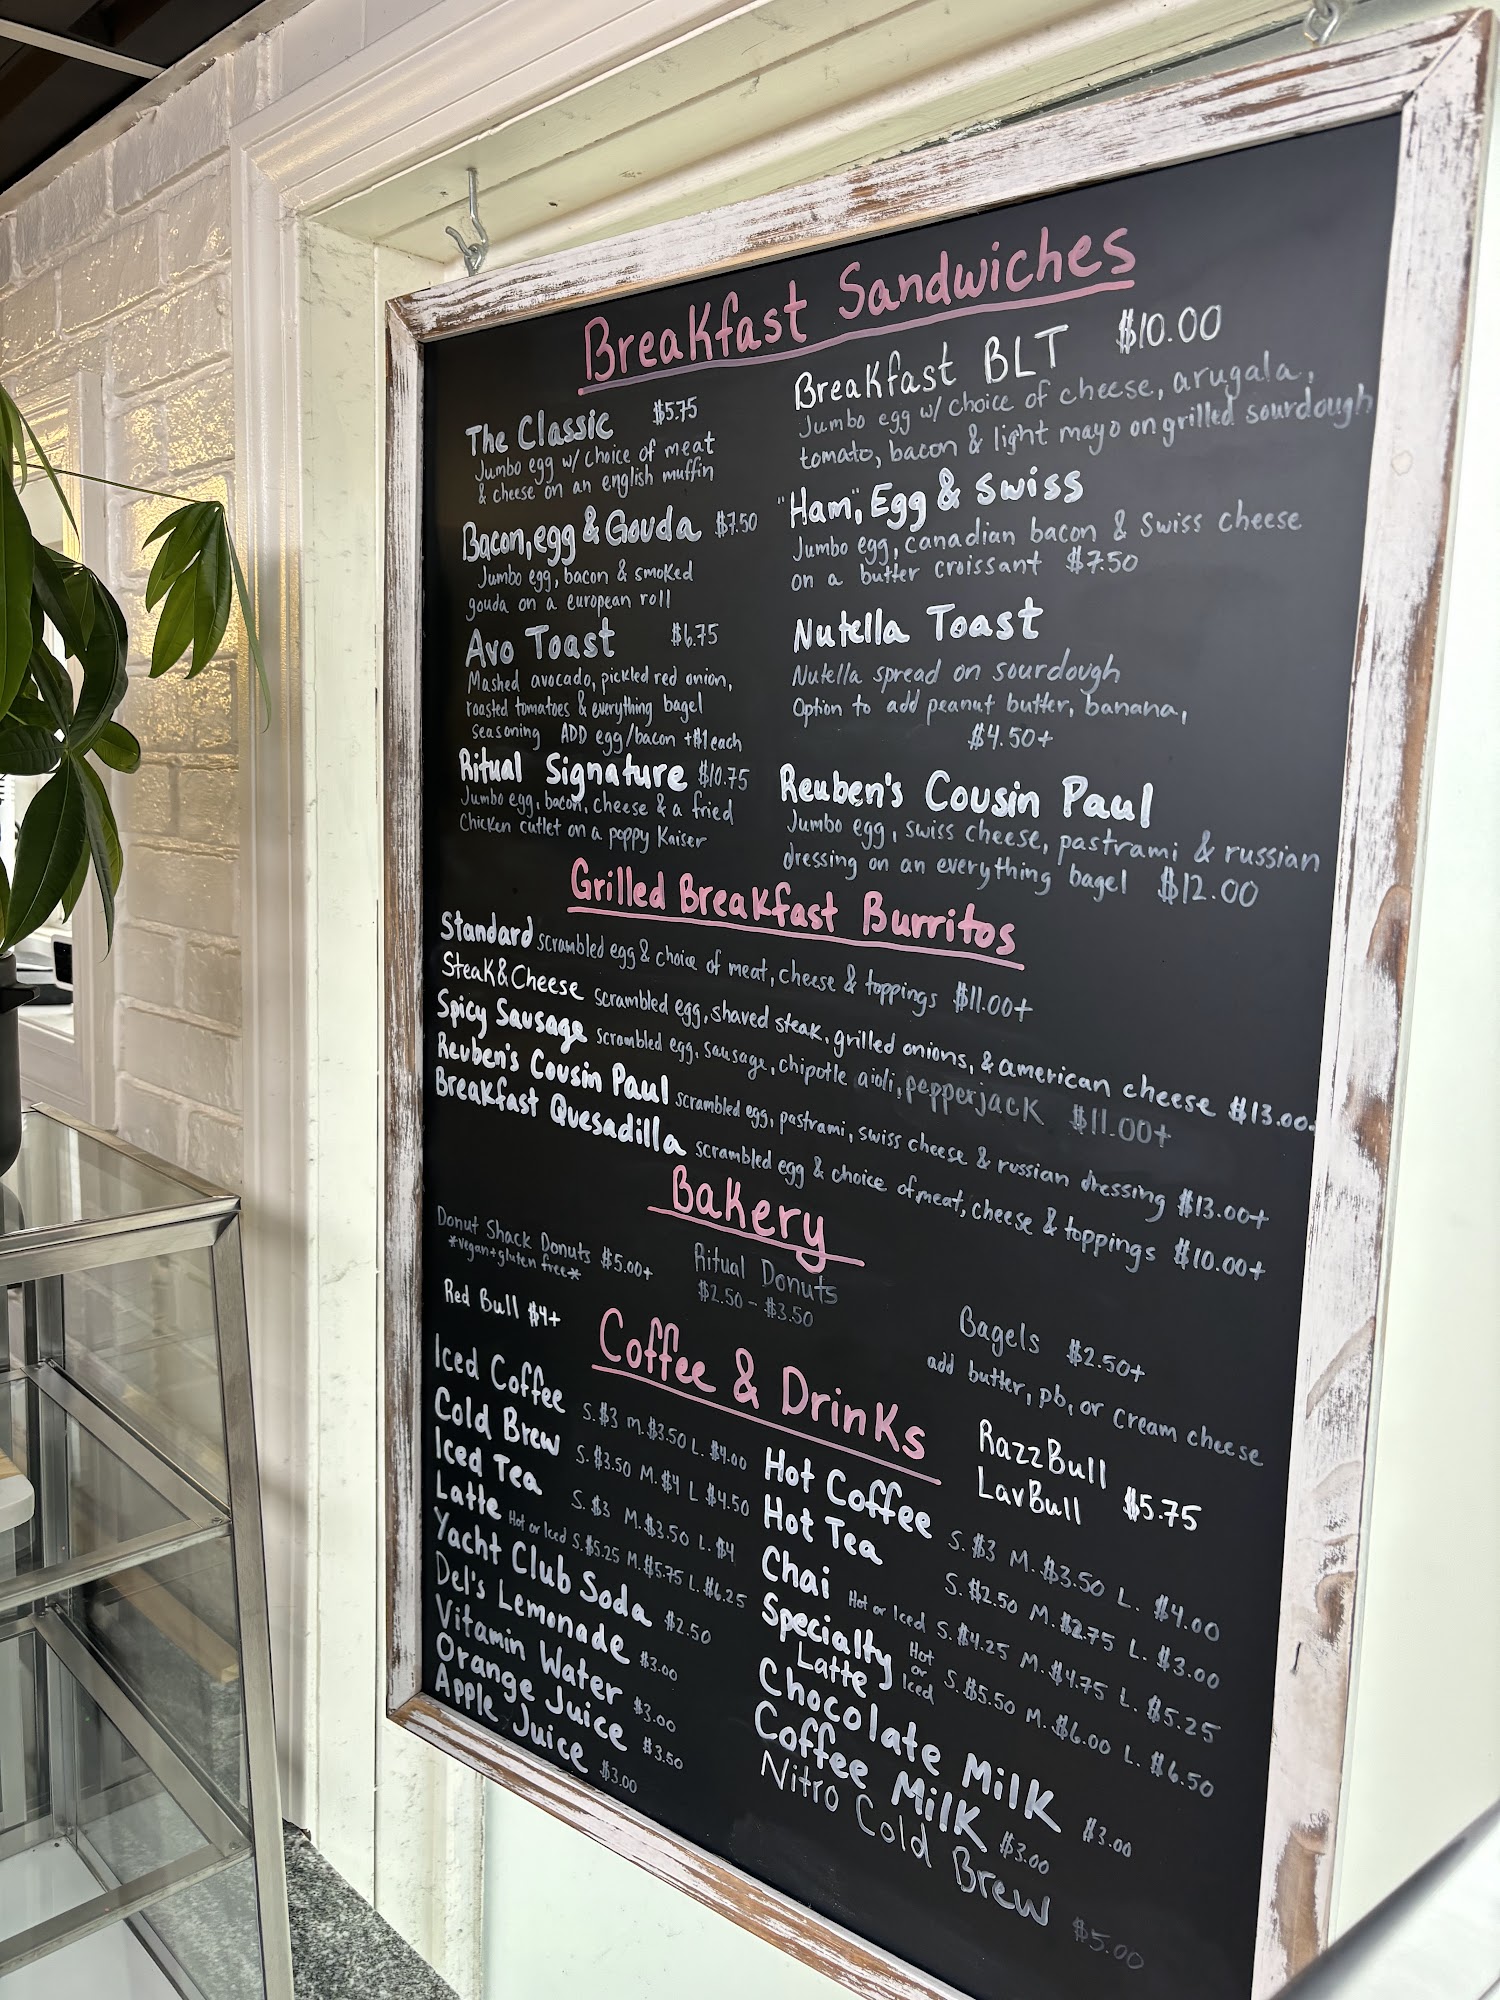 Breakfast Sandwiches
The Classic $5.75
Jumbo egg w/ choice of meat
& cheese on an english muffin
Bacon, egg & Gouda $7.50
Jumbo egg, bacon & smoked
gouda on a european roll
Avo Toast $6.75
Mashed avocado, pickled red onion,
roasted tomatoes & everything bagel
seasoning ADD egg/bacon +$1 each
Ritual Signature $10.75
Jumbo egg, bacon, cheese & a fried
Chicken cutlet on a poppy Kaiser
Breakfast BLT $10.00
Jumbo egg w/ choice of cheese, arugala,
tomato, bacon & light mayo on grilled sourdough
"Ham", Egg & Swiss
Jumbo egg, canadian bacon & Swiss cheese
on a butter croissant $7.50
Nutella Toast
Nutella spread on sourdough
Option to add peanut butter, banana,
$4.50+
Reuben's Cousin Paul
Jumbo egg, swiss cheese, pastrami & russian
dressing on an everything bagel $12.00
Grilled Breakfast Burritos
Standard scrambled egg & choice of meat, cheese & toppings $11.00+
Steak & Cheese scrambled egg, shaved steak, grilled onions, & american cheese $13.00+
Spicy Sausage scrambled egg, sausage, chipotle aioli, pepperjack $11.00+
Reuben's Cousin Paul scrambled egg, pastrami, swiss cheese & russian dressing $13.00+
Breakfast Quesadilla scrambled egg & choice of meat, cheese & toppings $10.00+
Bakery
Donut Shack Donuts $5.00+
*vegan+gluten free*
Ritual Donuts
$2.50 - $3.50
Bagels $2.50+
add butter, pb, or cream cheese
Red Bull $4+
Coffee & Drinks
RazzBull
LavBull $5.75
Iced Coffee S. $3 M. $3.50 L. $4.00
Cold Brew S. $3.50 M. $4 L $4.50
Iced Tea S. $3 M. $3.50 L. $4
Latte Hot or Iced S. $5.25 M. $5.75 L. $6.25
Yacht Club Soda $2.50
Del's Lemonade $3.00
Vitamin Water $3.00
Orange Juice $3.50
Apple Juice $3.00
Hot Coffee S. $3 M. $3.50 L. $4.00
Hot Tea S. $2.50 M. $2.75 L. $3.00
Chai Hot or Iced S. $4.25 M. $4.75 L. $5.25
Specialty Latte Hot or Iced S. $5.50 M. $6.00 L. $6.50
Chocolate Milk $3.00
Coffee Milk $3.00
Nitro Cold Brew $5.00